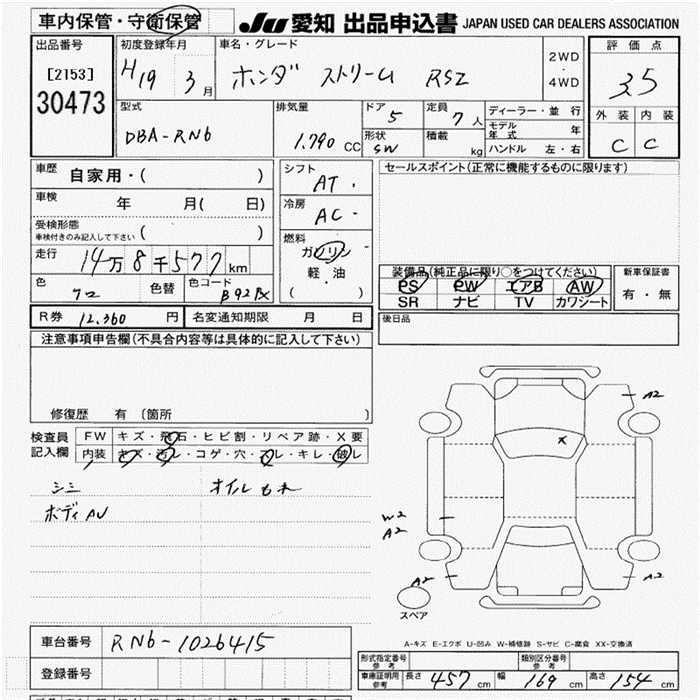 車内保管・守衛保管 JU 愛知 出品申込書 JAPAN USED CAR DEALERS ASSOCIATION
出品番号 初度登録年月 車名・グレード 評価点
[2153] H19 3月 ホンダ ストリーム RSZ 2WD・4WD 3.5
30473
型式 排気量 ドア 5 定員 7人 ディーラー・並行 外装 内装
DBA-RN6 1.790 CC 形状 SW 積載 kg モデル年式 年 C C
ハンドル 左・右
車歴 自家用・( ) シフト AT・ セールスポイント(正常に機能するものに限ります)
車検 年 月( 日) 冷房 AC・
受検形態 車検付きのみ記入して下さい ( )
燃料 ガソリン
走行 14万8千577km 軽・油 ( )
装備品(純正品に限り○をつけてください) 新車保証書
色 クロ 色替 色コード B92PX PS PW エアB AW 有・無
SR ナビ TV カワシート
R券 12,360 円 名変通知期限 月 日 後日品
注意事項申告欄(不具合内容等は具体的に記入して下さい)
修復歴 有 (箇所 )
検査員記入欄 FW キズ・飛石・ヒビ割・リペア跡・X要
内装 キズ・汚レ・コゲ・穴・スレ・キレ・破レ
シミ オイルもれ
ボディAU
A2
X
W2
A2
A2 A2
スペア
A-キズ E-エクボ U-凹み W-補修跡 S-サビ C-腐食 XX-交換済
車台番号 RN6-1026415
形式指定番号 参考 類別区分番号 参考
登録番号 車庫証明用 参考 長さ 457cm 幅 169cm 高さ 154cm